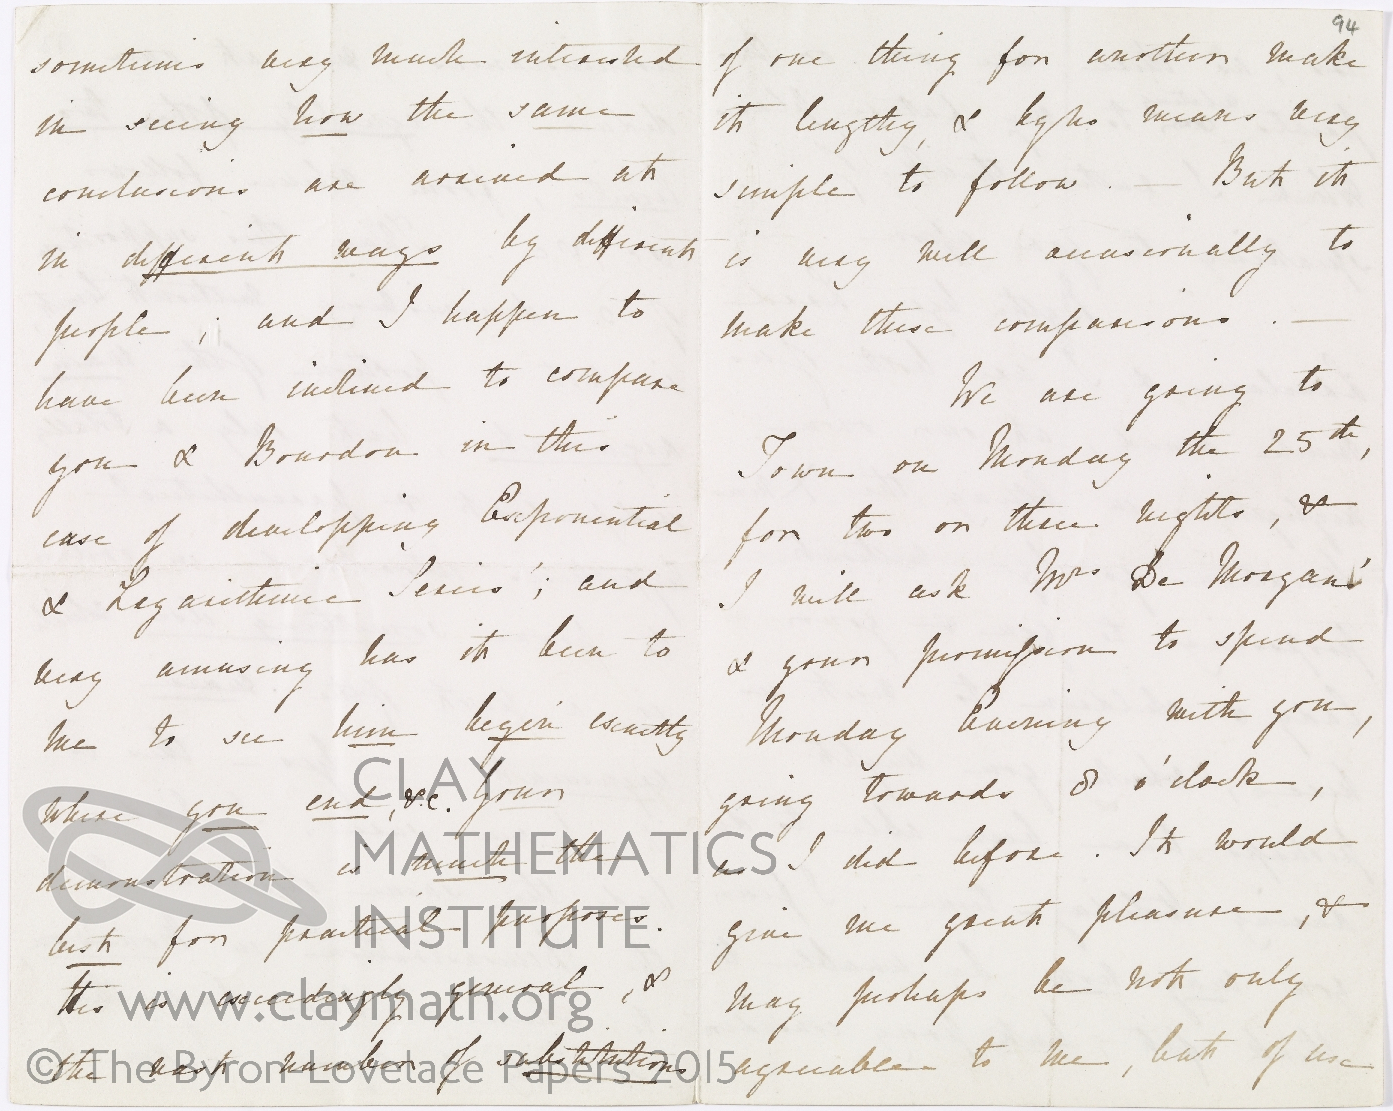 94
sometimes very much interested
in seeing how the same
conclusions are arrived at
in different ways by different
people; and I happen to
have been inclined to compare
you & Bourdon in this
case of developping Exponential
& Logarithmic Series'; and
very amusing has it been to
me to see him begin exactly
where you end, &c. Your
demonstration is much the
best for practical purposes.
His is exceedingly general, &
the vast number of substitutions
of one thing for another make
it lengthy, & by no means very
simple to follow. — But it
is very well occasionally to
make these comparisons. —
We are going to
Town on Monday the 25th,
for two or three nights, &
I will ask Mrs De Morgan's
& your permission to spend
Monday Evening with you,
going towards 8 o'clock,
as I did before. It would
give me great pleasure, &
may perhaps be not only
agreeable to me, but of use
CLAY
MATHEMATICS
INSTITUTE
www.claymath.org
© The Byron-Lovelace Papers 2015